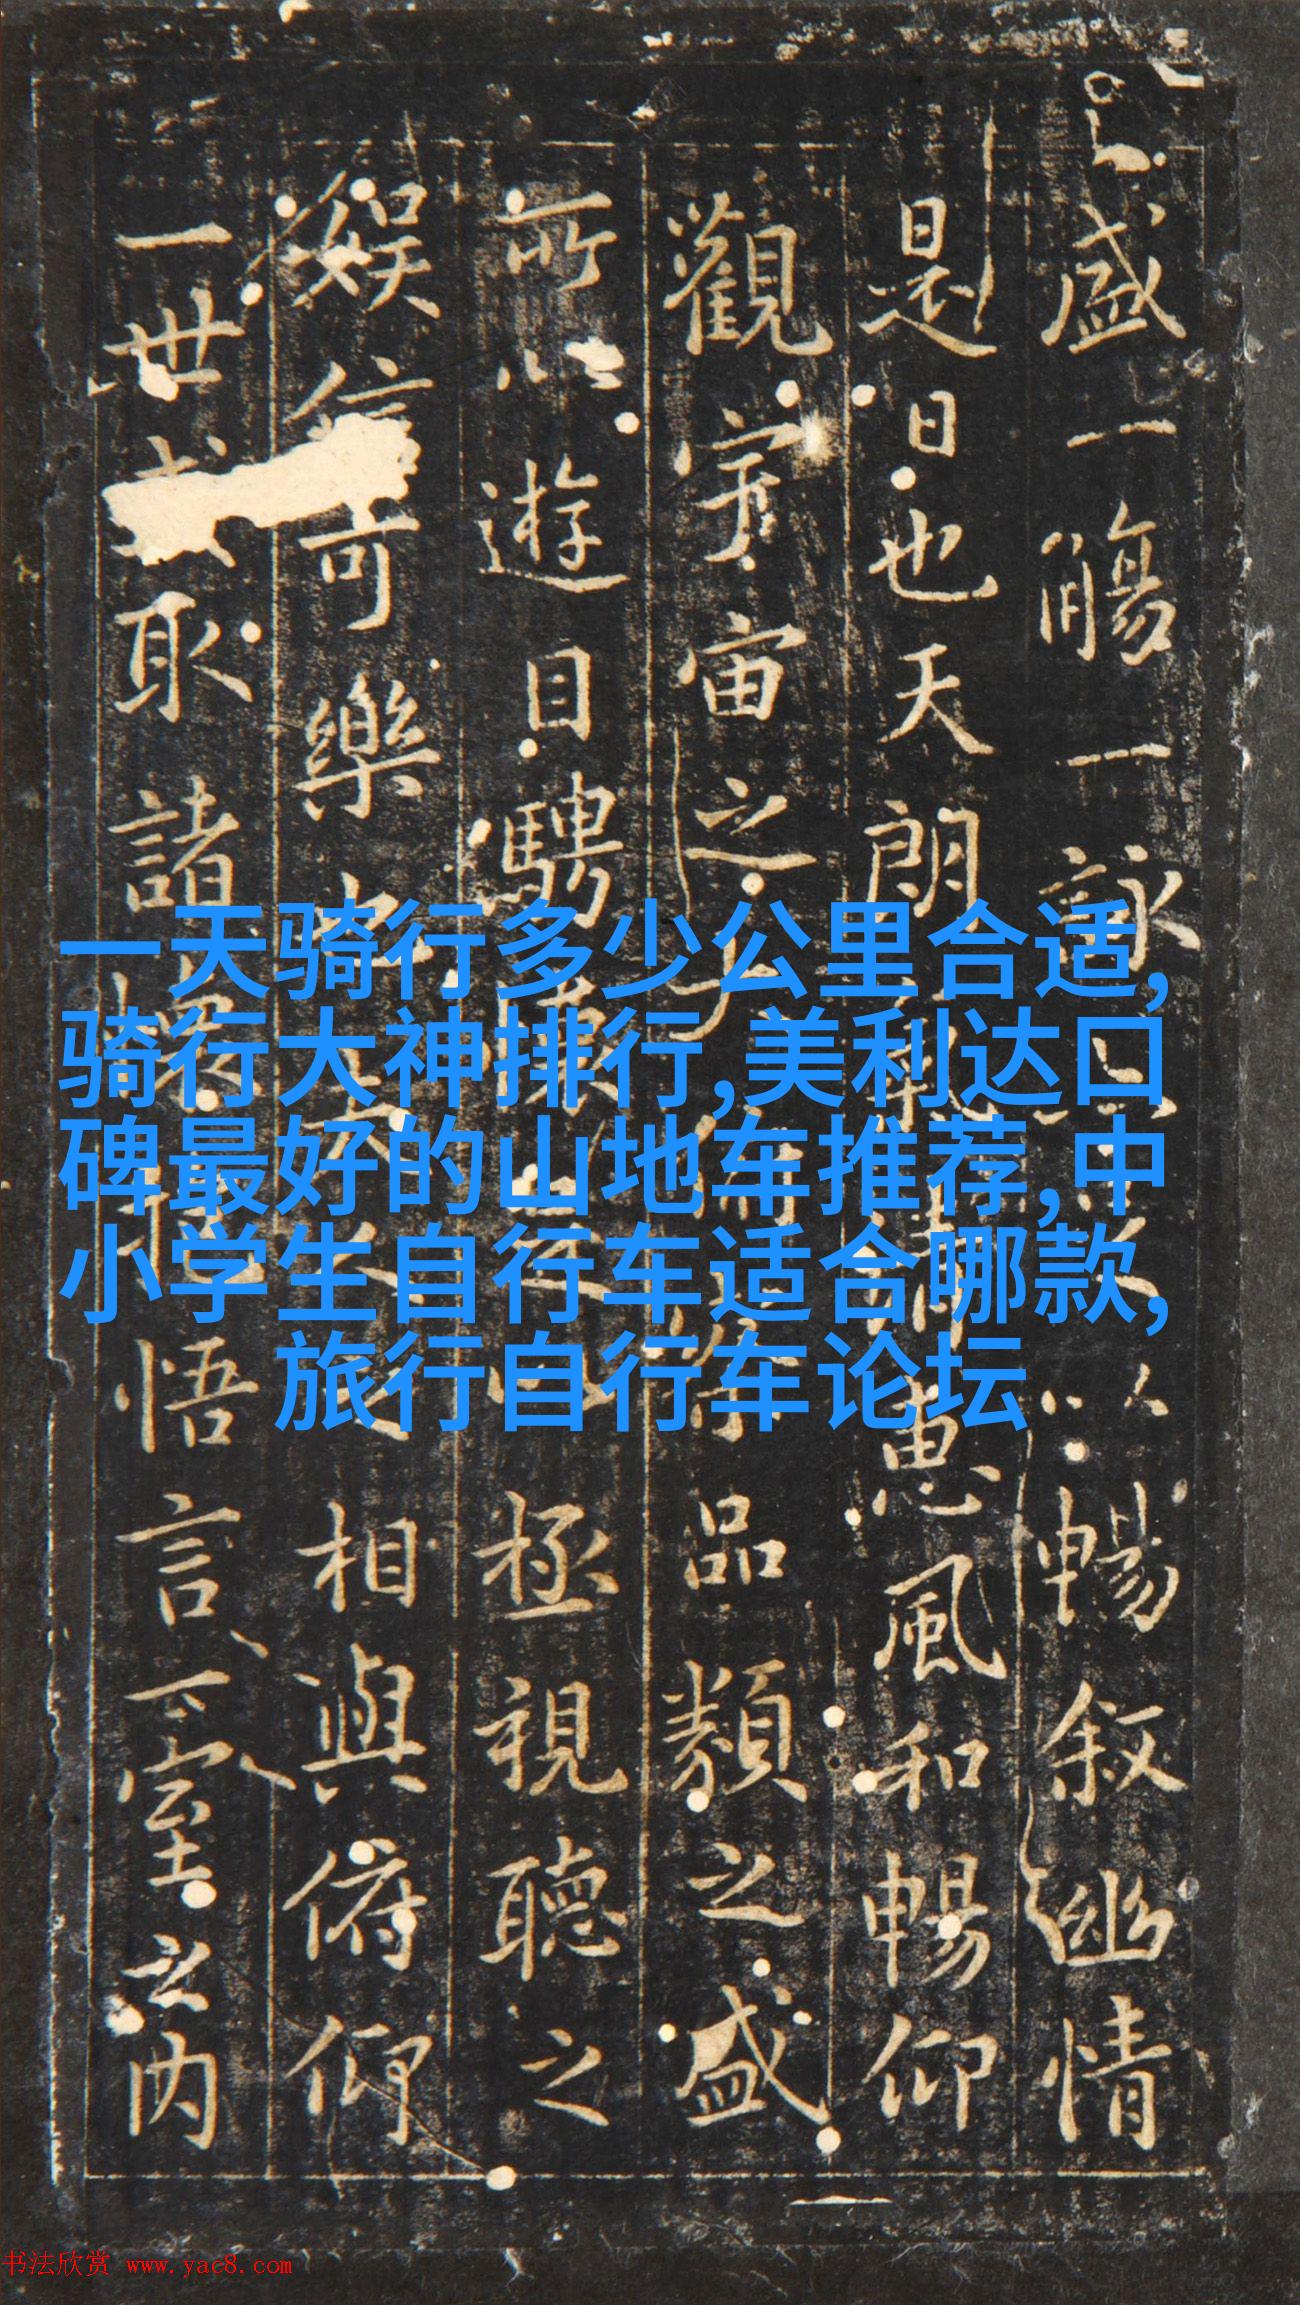 盛一觴一詠以暢叙幽情
是日也天朗氣清惠風和暢仰
觀宇宙之大俯察品類之盛
所以遊目騁懷足以極視聽之
娱信可樂也夫人之相與俯仰
一世取諸懷抱悟言一室之内
一天骑行多少公里合适,
骑行大神排行,美利达口
碑最好的山地车推荐,中
小学生自行车适合哪款,
旅行自行车论坛
书法欣赏 www.yac8.com